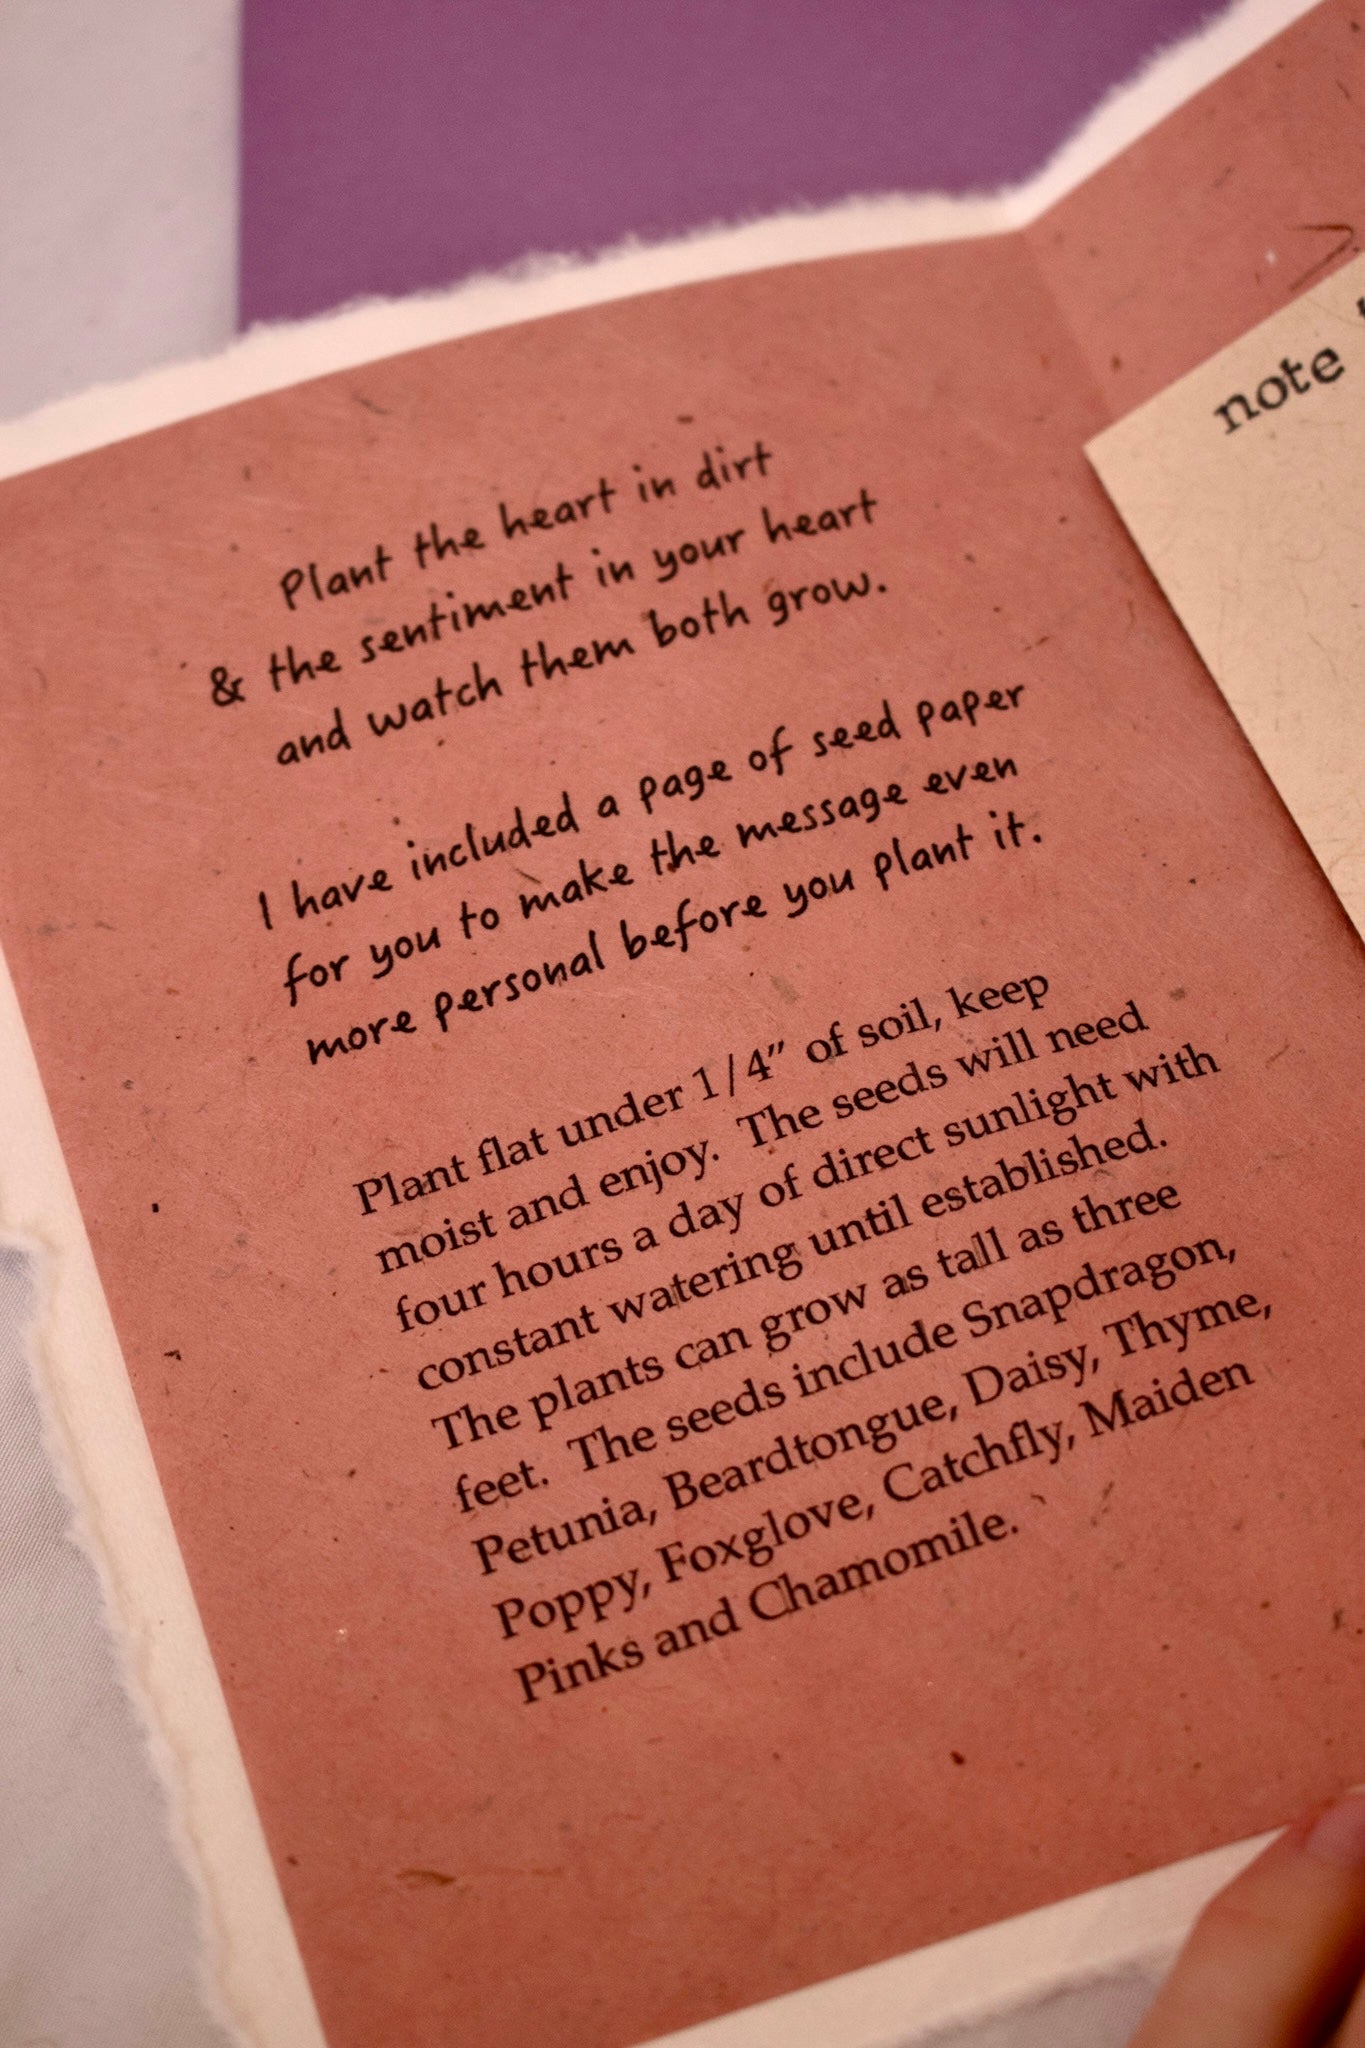 Plant the heart in dirt
& the sentiment in your heart
and watch them both grow.
I have included a page of seed paper
for you to make the message even
more personal before you plant it.
Plant flat under 1/4" of soil, keep
moist and enjoy. The seeds will need
four hours a day of direct sunlight with
constant watering until established.
The plants can grow as tall as three
feet. The seeds include Snapdragon,
Petunia, Beardtongue, Daisy, Thyme,
Poppy, Foxglove, Catchfly, Maiden
Pinks and Chamomile.
note